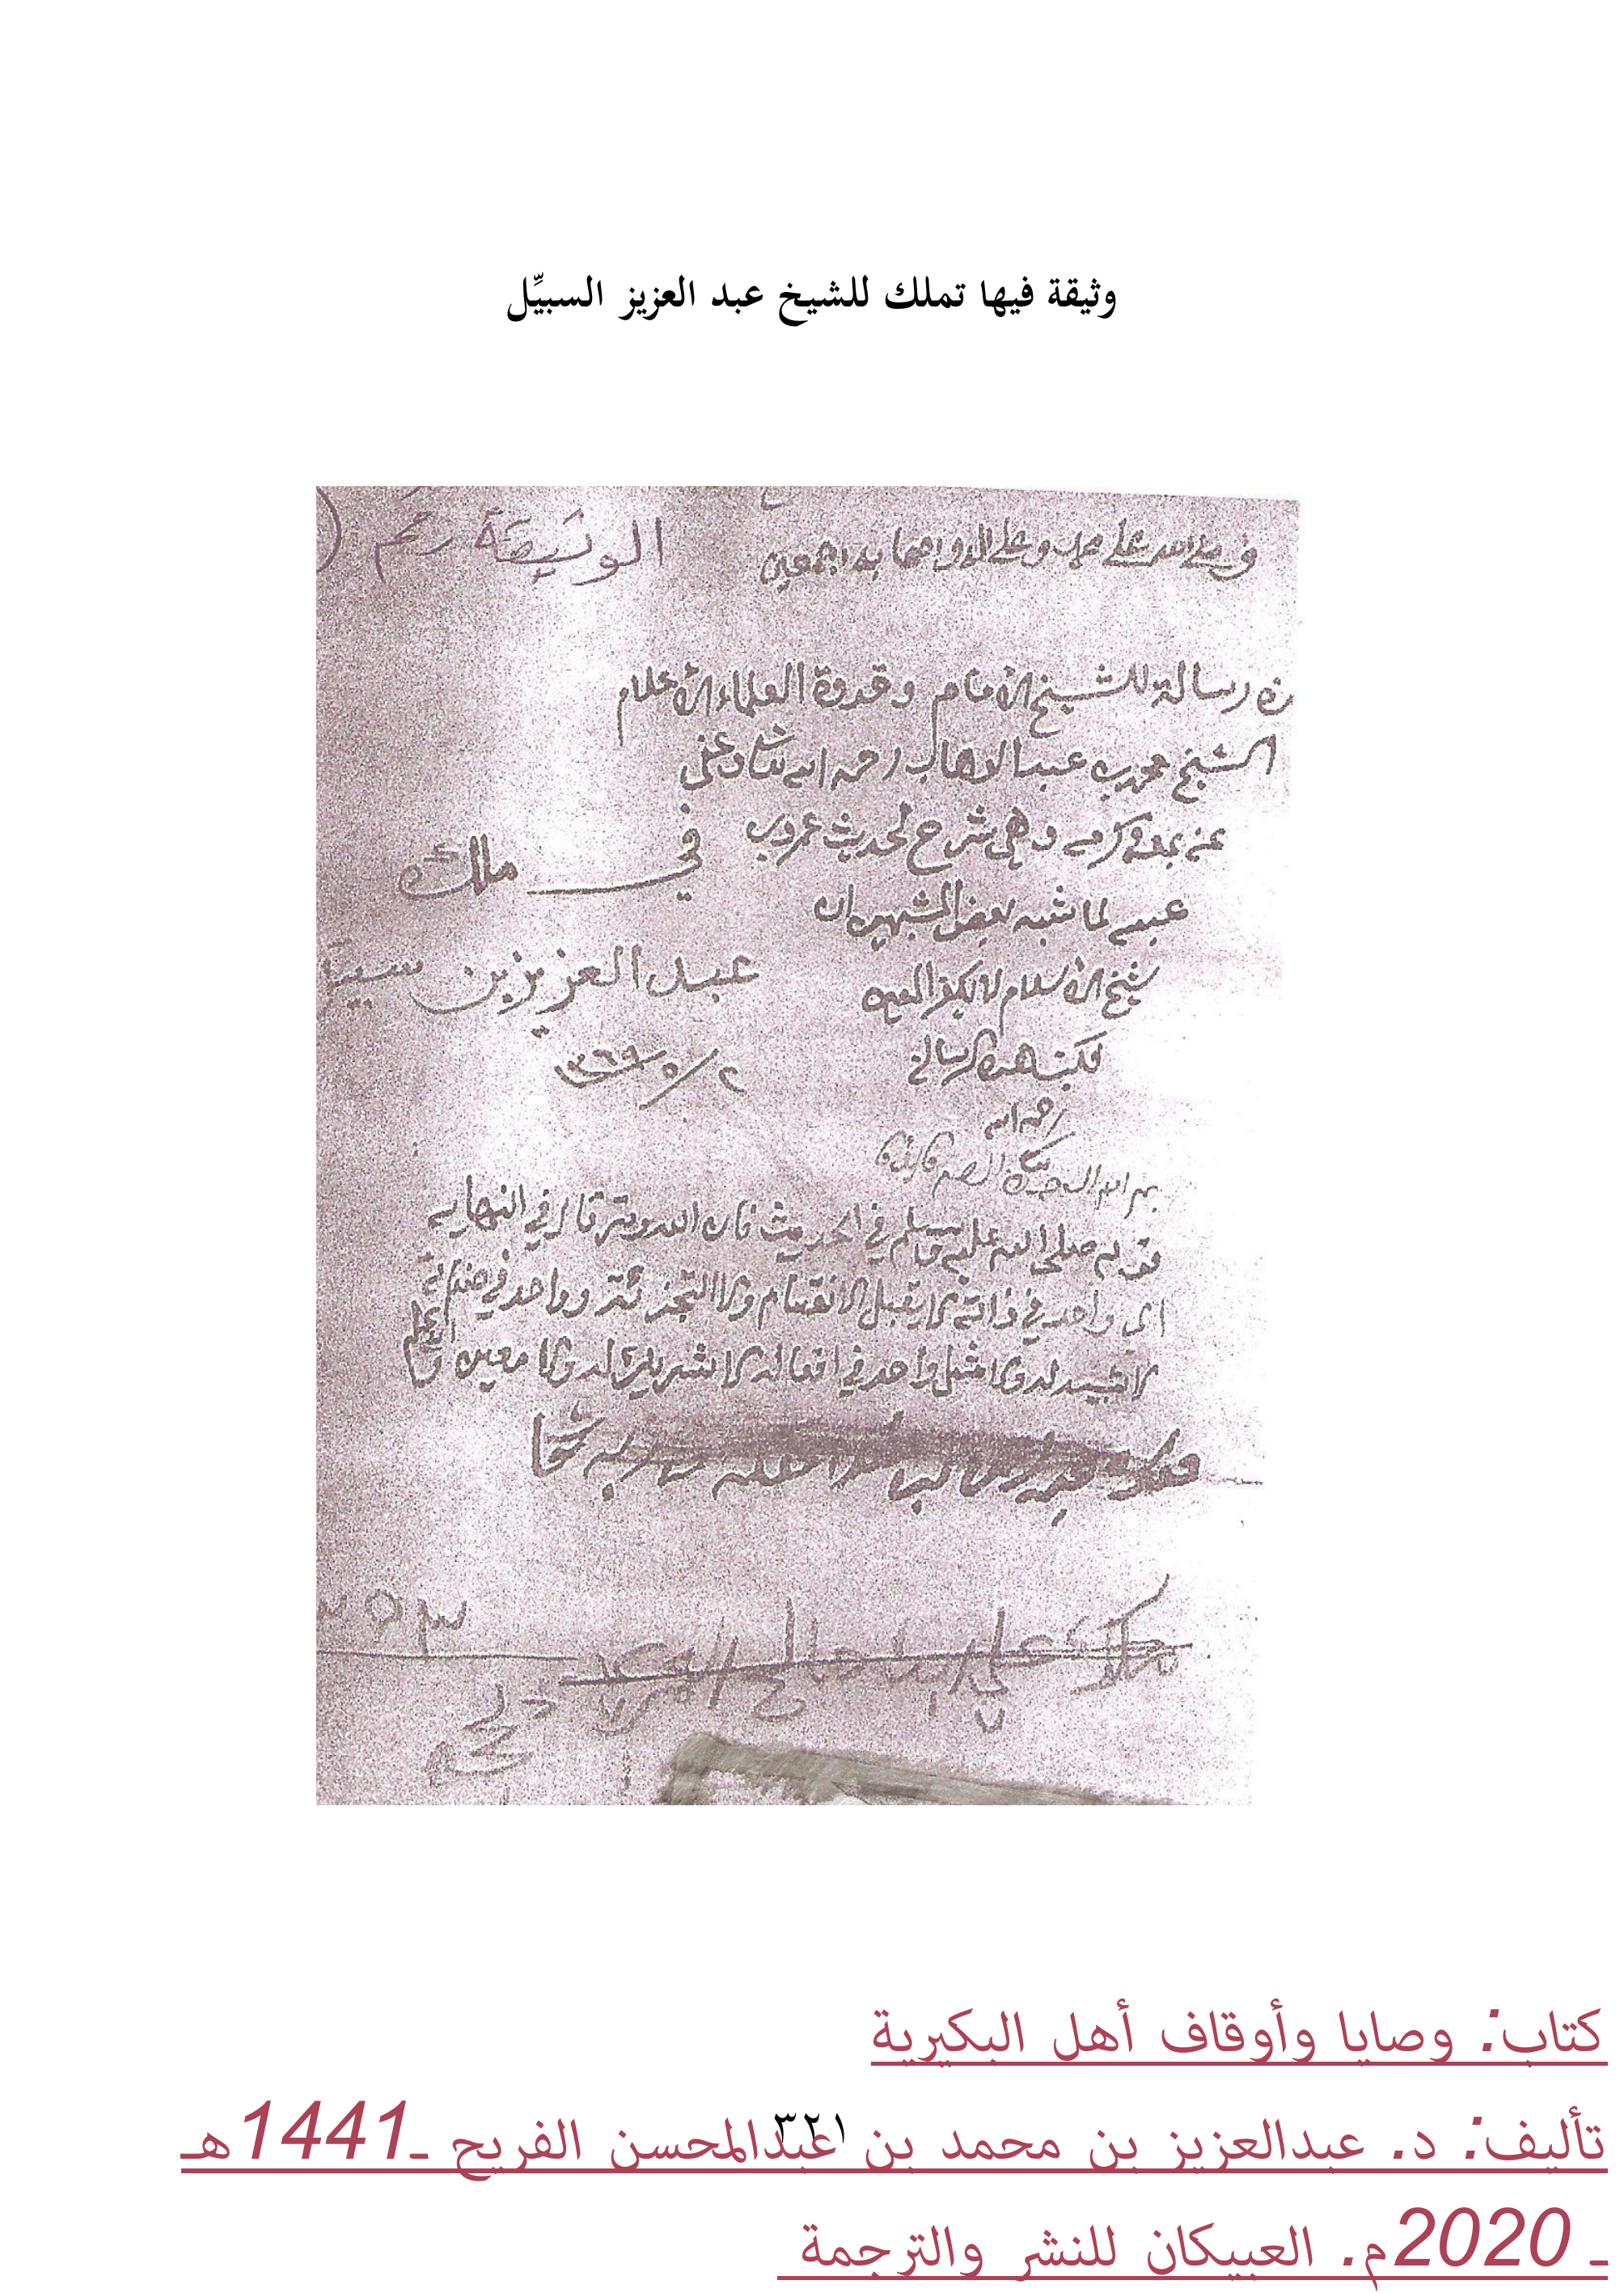 وثيقة فيها تملك للشيخ عبد العزيز السبيِّل
وصلى الله على محمد وعلى اله واصحابه اجمعين
الوثيقة رقم (
رسالة للشيخ الامام وقدوة العلماء الاعلام
الشيخ محمد بن عبد الوهاب رحمه الله تعالى وعفى
عنه بمنه وكرمه وهي شرح لحديث عمرو بن
في ملك
عبسه لما شبه بعض المشبهين ان
عبد العزيز بن
شيخ الاسلام لا يكفر المعين
فكتب هذه الرسالة
٢/٥/١٣٦٩
رحمه الله
بسم الله الرحمن الرحيم
قوله صلى الله عليه وسلم في الحديث فان الله وتر قال في النهايه
اي واحد في ذاته لا يقبل الانقسام ولا التجزئة وواحد في صفاته
لا شبيه له ولا مثل واحد في افعاله لا شريك له ولا معين
٣٥٣
كتاب: وصايا وأوقاف أهل البكيرية
تأليف: د. عبدالعزيز بن محمد بن عبدالمحسن الفريح ـ1441هـ
٣٢١
ـ 2020م. العبيكان للنشر والترجمة